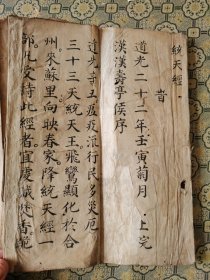 統天經
昔
道光二十二年壬寅菊月 上完
漢漢壽亭侯序
道光辛丑瘟疫流行民多災厄
三十三天統天王飛鸞顯化於合
州來蘇里向映春家降統天經一
部凡受持此經者宜虔誠